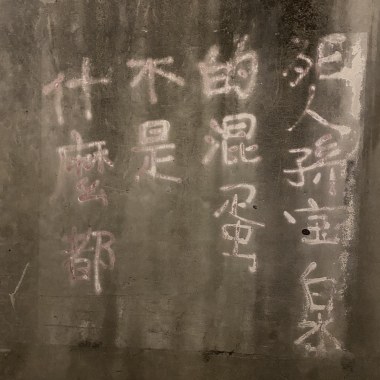 什麼都
不是
的混蛋
人孫宝泉